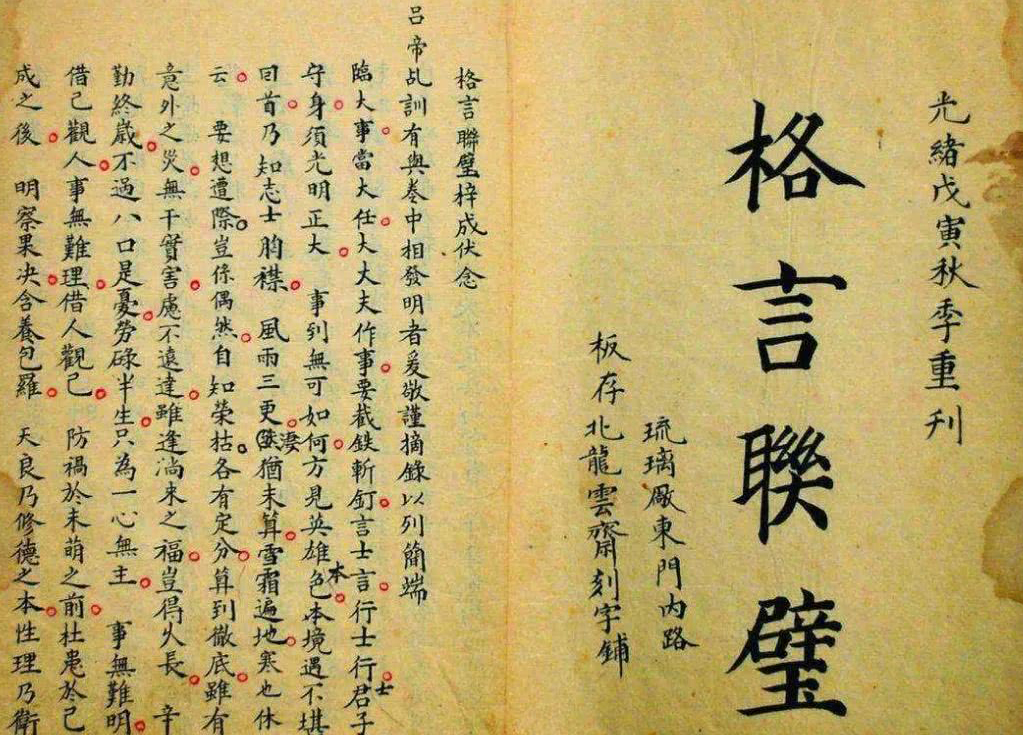 光緒戊寅秋季重刊
格言聯璧
琉璃厰東門內路
板存北龍雲齋刻字鋪
格言聯璧梓成伏念
呂帝乩訓有與卷中相發明者爰敬謹摘錄以列簡端
臨大事當大任大大夫作事要截鉄斬釘言士言行士行君子
士
守身須光明正大 事到無可如何方見英雄色本境遇不堪
本
回首乃知志士胸襟 風雨三更猶未算雪霜遍地寒也休
淒
云 要想遭際豈係偶然自知榮枯各有定分算到徹底雖有
意外之災無干實害慮不遠達雖逢淌來之福豈得久長 辛
勤終歳不過八口是憂勞碌半生只為一心無主 事無難明
借己觀人事無難理借人觀己 防禍於未萌之前杜患於已
成之後 明察果决含養包羅 天良乃修德之本性理乃衛